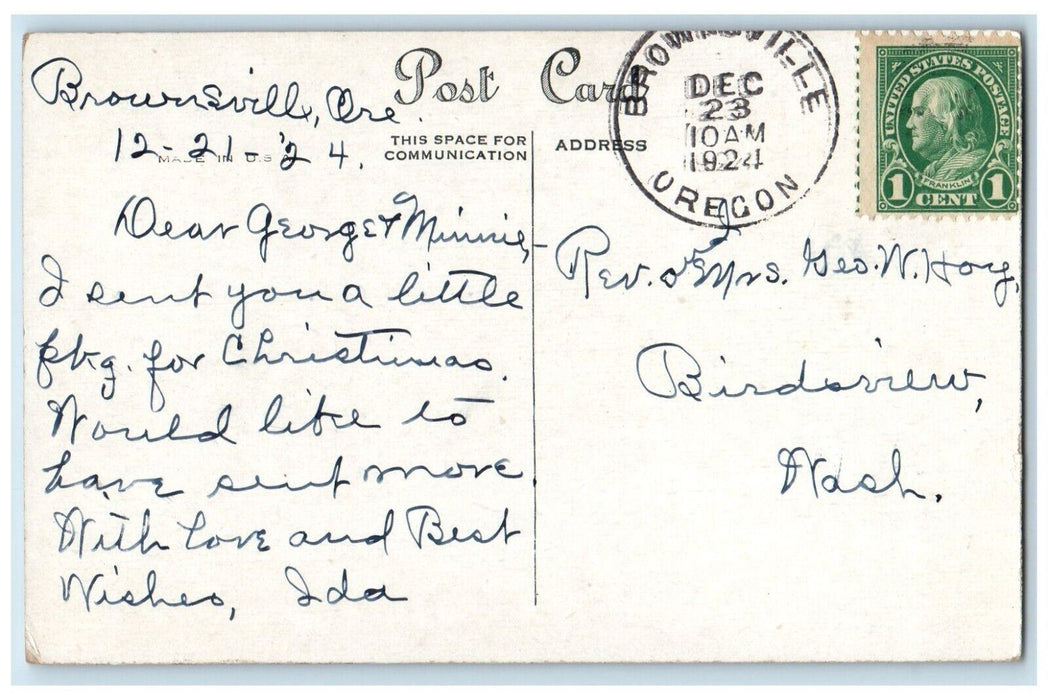 Post Card
Brownsvill, Ore.
12-21-'24.
MADE IN U.S.A.
THIS SPACE FOR
COMMUNICATION
ADDRESS
Dear George & Minnie,-
I sent you a little
pkg. for Christmas.
Would like to
have sent more.
With Love and Best
Wishes, Ida
BROWNSVILLE
DEC
23
10AM
1924
OREGON
UNITED STATES POSTAGE
FRANKLIN
1 CENT 1
Rev. & Mrs. Geo. W. Hoag,
Birdsview,
Wash.